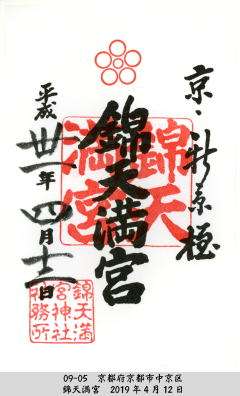 京・新京極
錦天満宮
平成卅一年四月十二日
錦天
満宮
錦天満
宮神社
社務所
09-05 京都府京都市中京区
錦天満宮 2019年4月12日